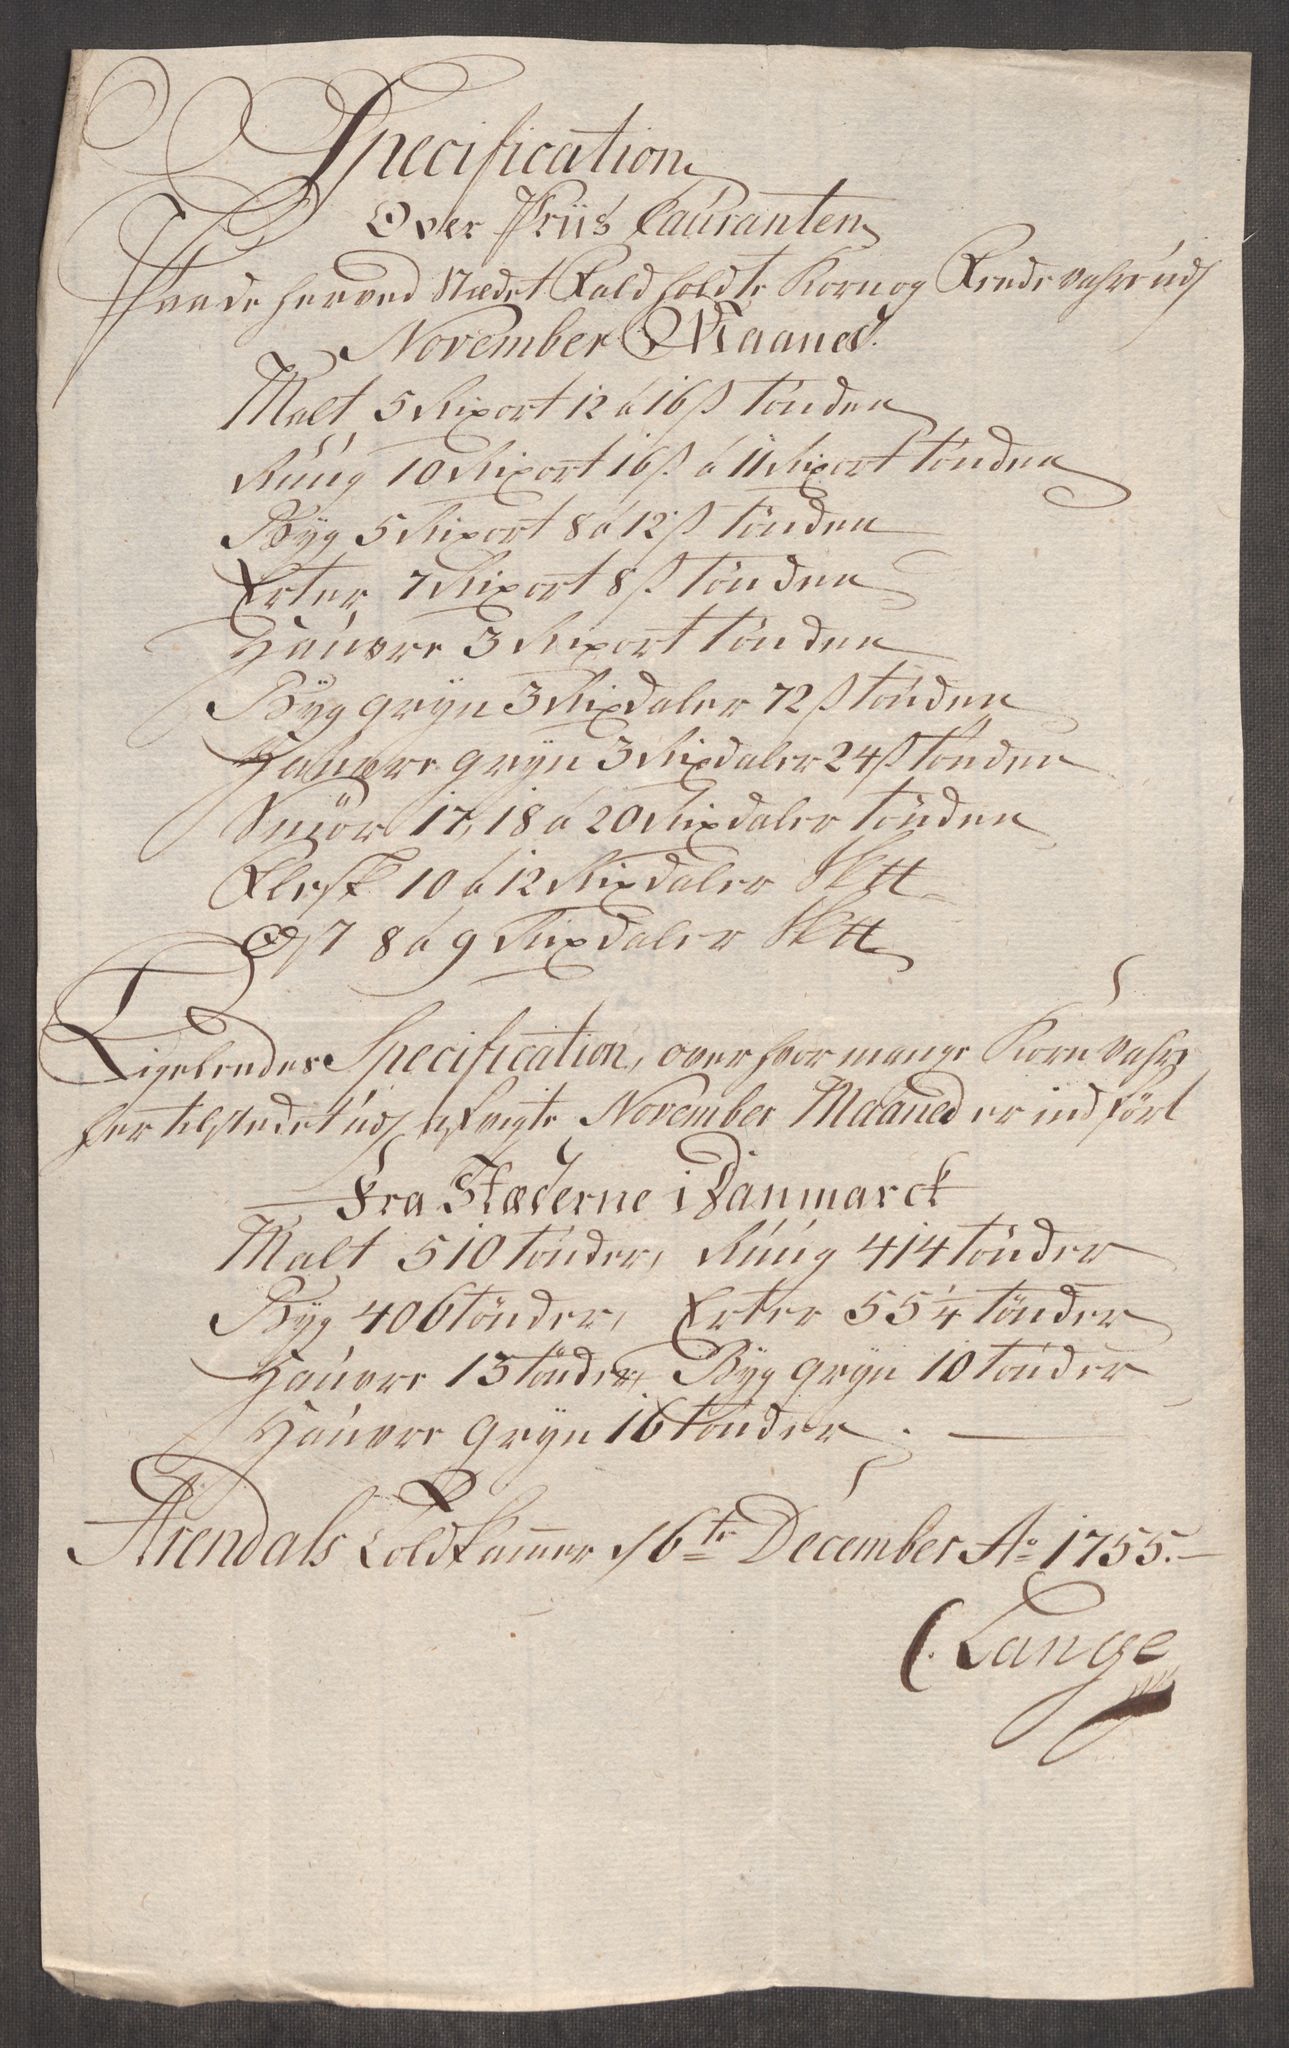 Specification
Over Priis Couranten
Paa de her ved Stædet Fald holdte Korn og Fede vahre udj
November Maaned.
Malt 5 Rixort 12 à 16 ß tönden
Rúúg 10 Rixort 16 ß à 11 Rixort tönden
Byg 5 Rixort 8 à 12 ß tönden
Erter 7 Rixort 8 ß tönden
Haúvre 3 Rixort tönden
Byg gryn 3 Rixdaler 72 ß tönden
Haúvre gryn 3 Rixdaler 24 ß tönden
Smör 17, 18 à 20 Rixdaler tönden
Flesk 10 à 12 Rixdaler Sktt
Ost 8 à 9 Rixdaler Sktt
Ligeledes Specification, over hvor mange Korn vahre
her til stedet udj afvigte November Maaned er indfört
Fra Stæderne i Danmarck
Malt 510 tönder, Rúúg 414 tönder
Byg 406 tönder, Erter 55 1/4 tönder
Haúvre 13 tönder, Byg gryn 10 tönder
Haúvre gryn 16 tönder.
Arendals Toldkammer d 16te December Ao 1755.
C. Lange